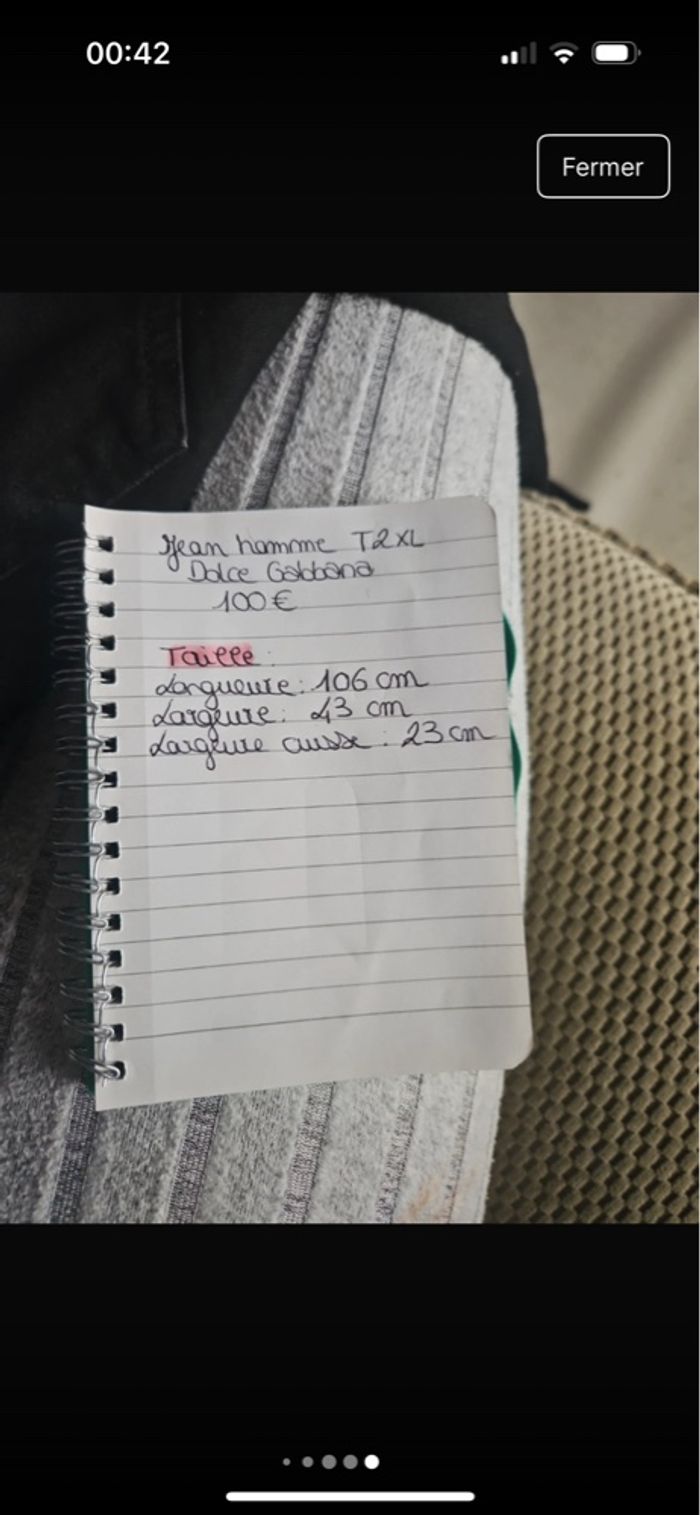 00:42
Fermer
Jean homme T2XL
Dolce Gabbana
100€
Taille :
Longueure : 106 cm
Largeure : 43 cm
Largeure cuisse : 23 cm